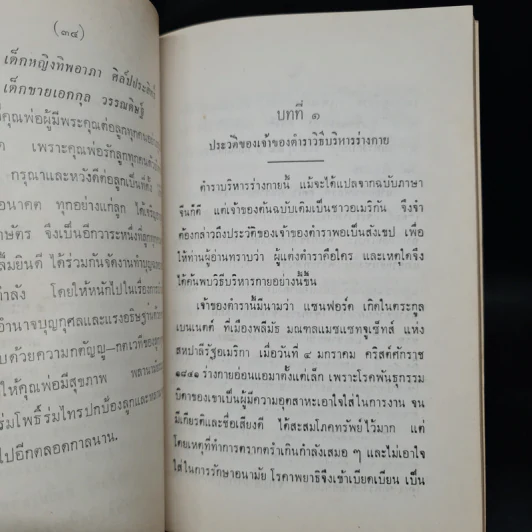 (๓๔)
เด็กหญิงทิพอาภา ศิลปประดิษฐ์
เด็กชายเอกกุล วรรณดิษฐ์
คุณพ่อผู้มีพระคุณต่อลูกทุกคน
เพราะคุณพ่อรักลูกทุกคน
กรุณาและหวังดีต่อลูกเป็นที่ตั้ง
อนาคต ทุกอย่างแก่ลูก ได้เจริญ
จึงเป็นอีกวาระหนึ่งที่ลูก
ยินดี ได้ร่วมกันจัดงานทำบุญ
โดยให้หนักไปในเรื่อง
อำนาจบุญกุศลและแรงอธิษฐาน
ด้วยความกตัญญู–กตเวที
ให้คุณพ่อมีสุขภาพ
ร่มโพธิ์ร่มไทรปกป้องลูก
ไปอีกตลอดกาลนาน.
บทที่ ๑
ประวัติของเจ้าของตำราวิธีบริหารร่างกาย
ตำราบริหารร่างกายนี้ แม้จะได้แปลจากฉบับภาษา
จีนก็ดี แต่เจ้าของต้นฉบับเดิมเป็นชาวอเมริกัน จึงจำ
ต้องกล่าวถึงประวัติของเจ้าของตำราพอเป็นสังเขป เพื่อ
ให้ท่านผู้อ่านทราบว่า ผู้แต่งตำราคือใคร และเหตุใดจึง
ได้ค้นพบวิธีบริหารกายอย่างนี้ขึ้น
เจ้าของตำรานี้มีนามว่า แซนฟอร์ด เกิดในตระกูล
เบนเนตต์ ที่เมืองพลิมัธ มณฑลแมซแซทชูเซ็ทส์ แห่ง
สหปาลีรัฐอเมริกา เมื่อวันที่ ๔ มกราคม คริสต์ศักราช
๑๘๔๑ ร่างกายอ่อนแอมาตั้งแต่เล็ก เพราะโรคพันธุกรรม
บิดาของเขาเป็นผู้มีความอุตสาหะเอาใจใส่ในการงาน จน
มีเกียรติและชื่อเสียงดี ได้สะสมโภคทรัพย์ไว้มาก แต่
โดยเหตุที่ทำการตรากตรำเกินกำลังเสมอ ๆ และไม่เอาใจ
ใส่ในการรักษาอนามัย โรคาพยาธิจึงเข้าเบียดเบียน เป็น